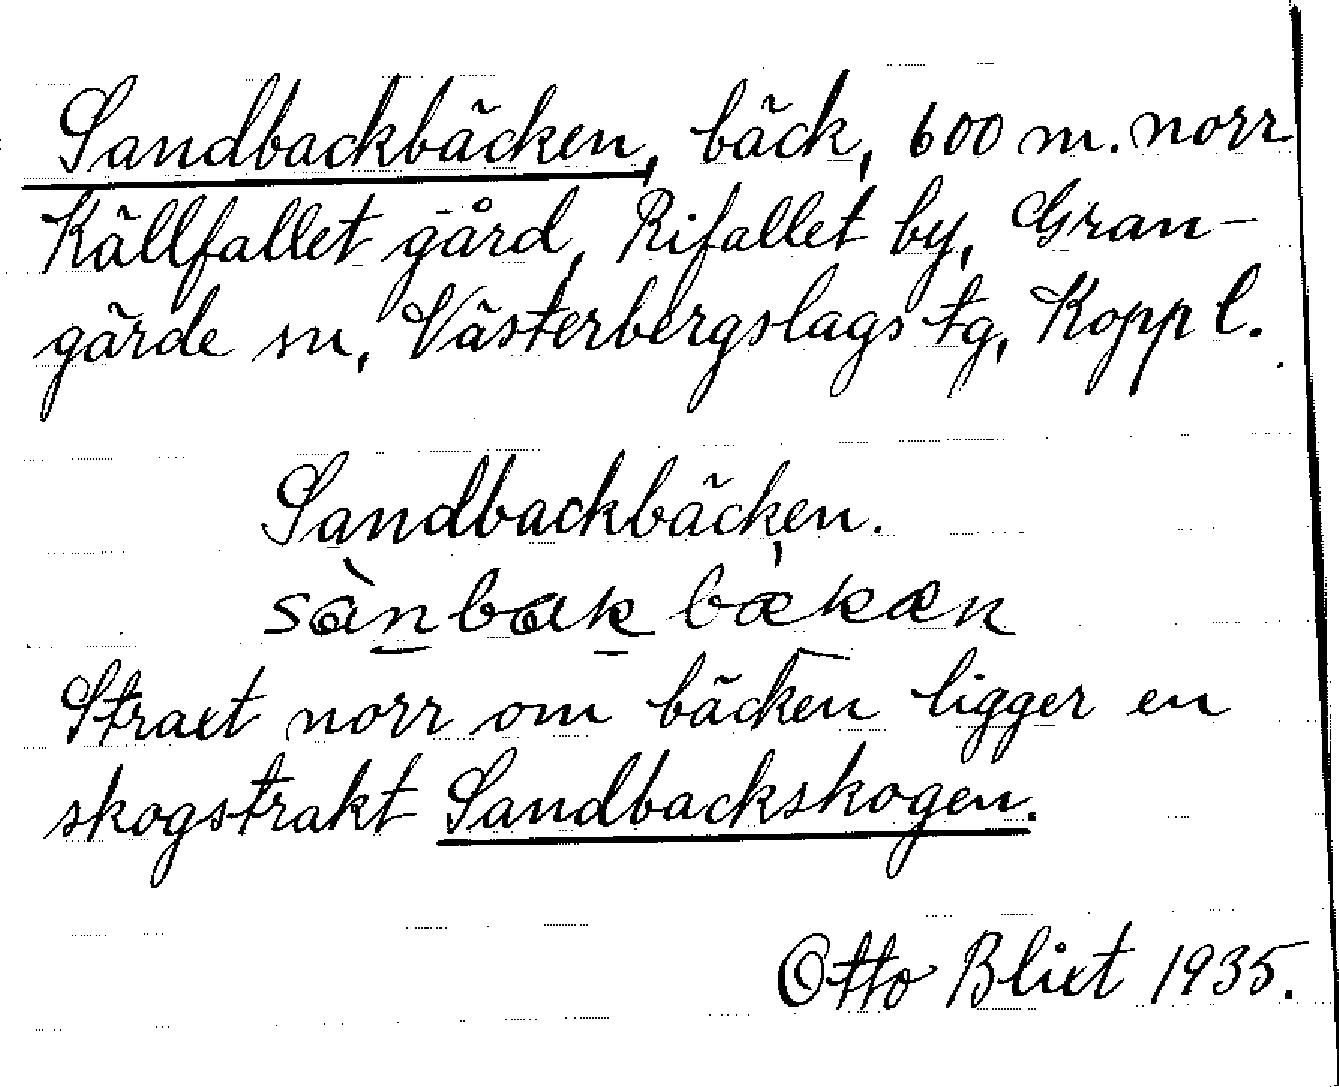 Sandbackbäcken, bäck, 600 m. norr
Källfallet gård, Rifallet by, Gran-
gärde sn, Västerbergslags tg, Kopp l.
Sandbackbäcken.
sànbak bækæn
Straxt norr om bäcken ligger en
skogstrakt Sandbackskogen.
Otto Blixt 1935.